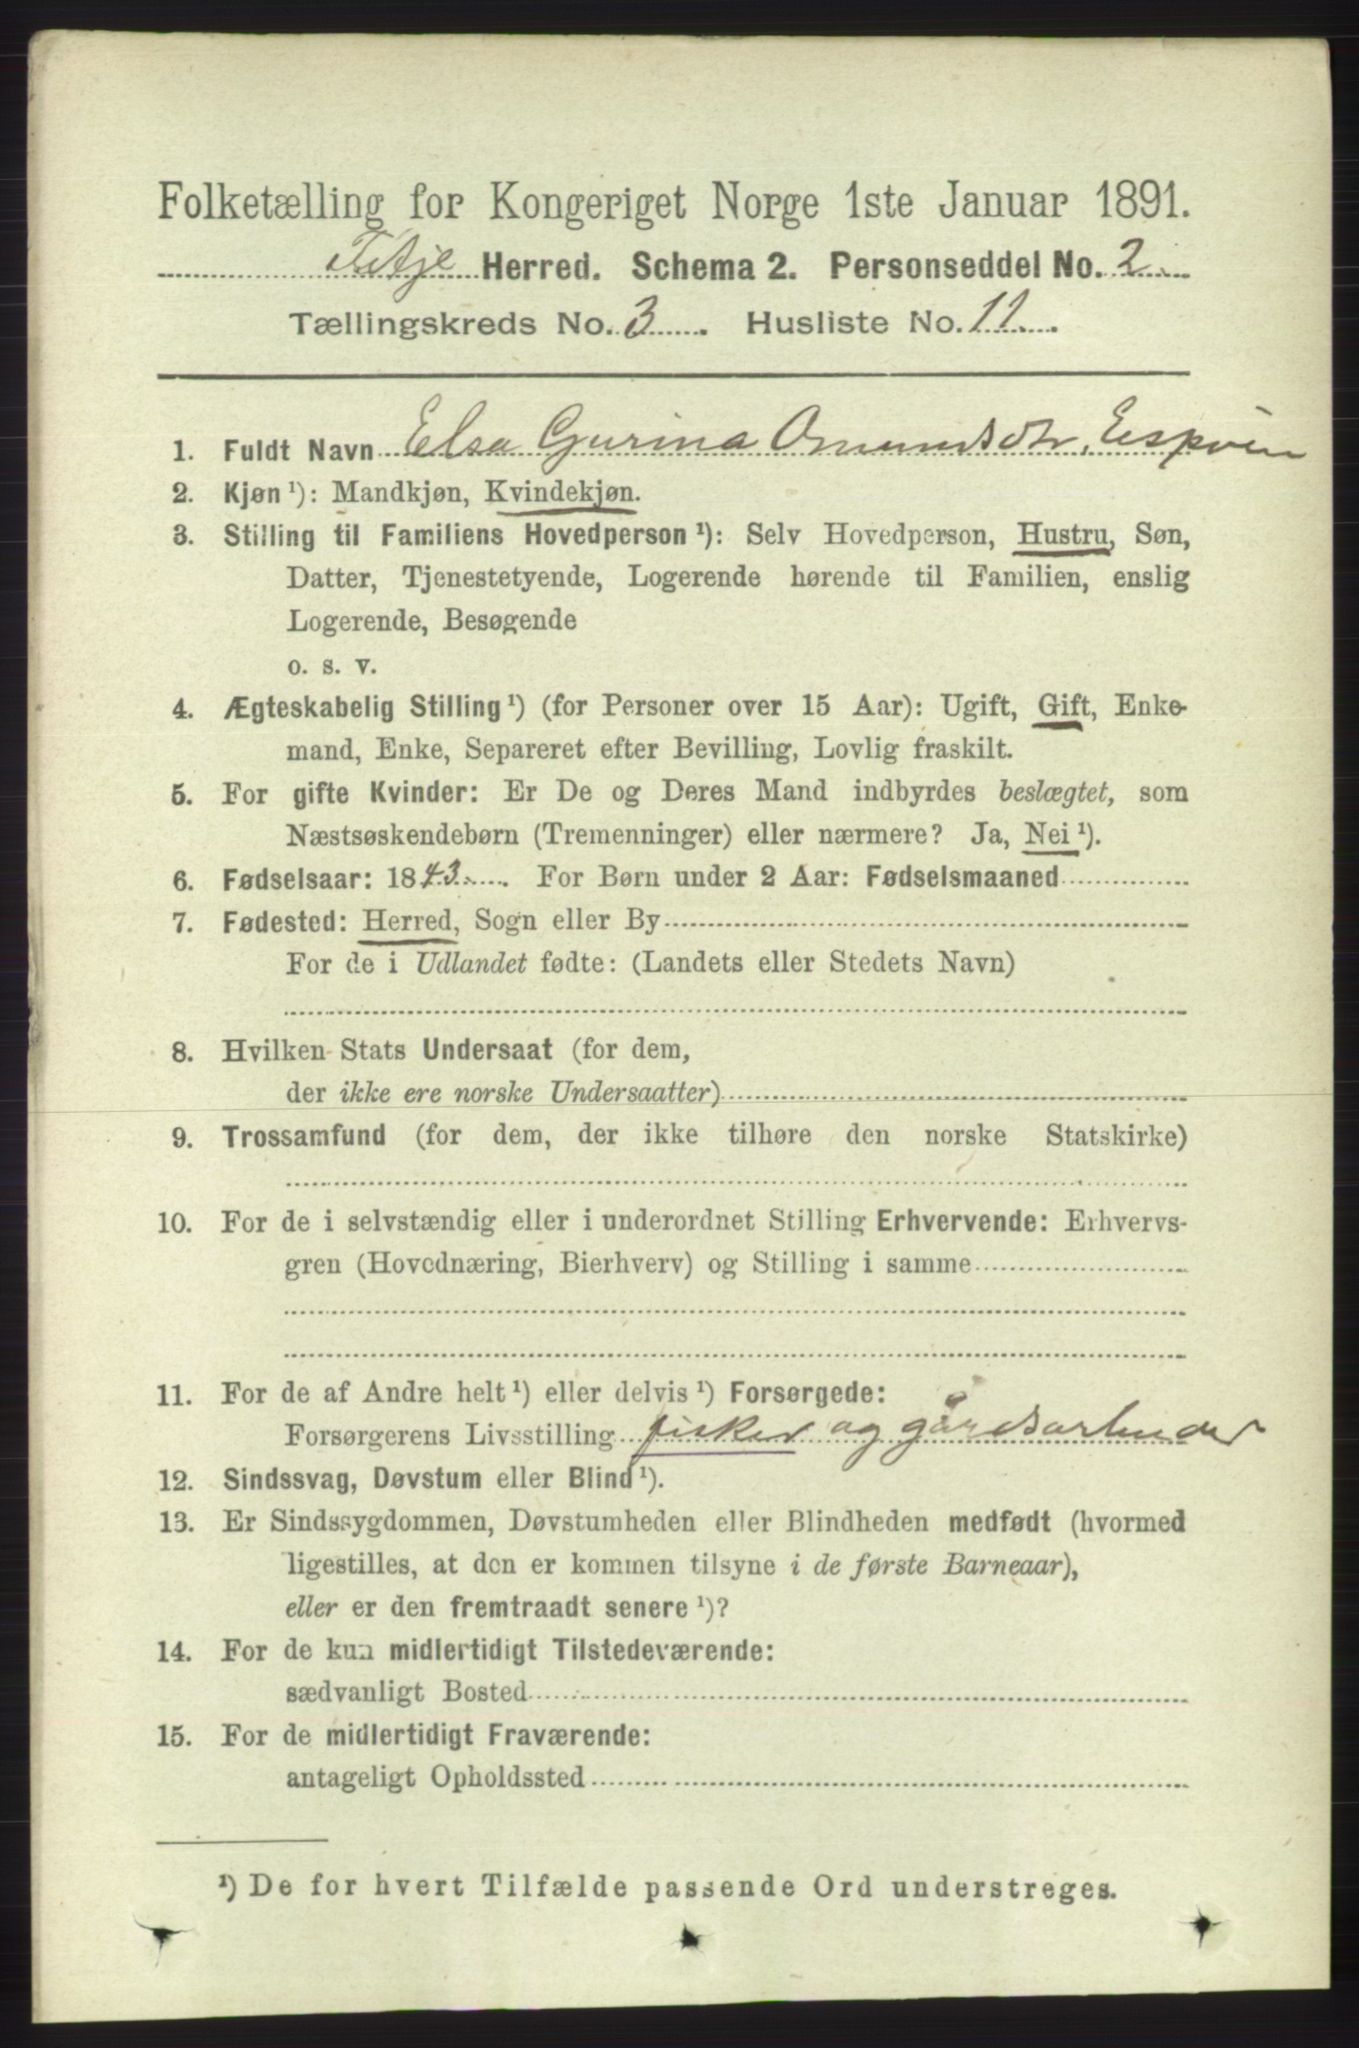 Folketælling for Kongeriget Norge 1ste Januar 1891.
Fitje Herred. Schema 2. Personseddel No. 2
Tællingskreds No. 3. Husliste No. 11.
1. Fuldt Navn Elsa Gurina Omundsdtr. Espvin
2. Kjøn ¹): Mandkjøn, Kvindekjøn.
3. Stilling til Familiens Hovedperson ¹): Selv Hovedperson, Hustru, Søn,
Datter, Tjenestetyende, Logerende hørende til Familien, enslig
Logerende, Besøgende
o. s. v.
4. Ægteskabelig Stilling ¹) (for Personer over 15 Aar): Ugift, Gift, Enke-
mand, Enke, Separeret efter Bevilling, Lovlig fraskilt.
5. For gifte Kvinder: Er De og Deres Mand indbyrdes beslægtet, som
Næstsøskendebørn (Tremenninger) eller nærmere? Ja, Nei ¹).
6. Fødselsaar: 1843. For Børn under 2 Aar: Fødselsmaaned
7. Fødested: Herred, Sogn eller By
For de i Udlandet fødte: (Landets eller Stedets Navn)
8. Hvilken Stats Undersaat (for dem,
der ikke ere norske Undersaatter)
9. Trossamfund (for dem, der ikke tilhøre den norske Statskirke)
10. For de i selvstændig eller i underordnet Stilling Erhvervende: Erhvervs-
gren (Hovednæring, Bierhverv) og Stilling i samme
11. For de af Andre helt ¹) eller delvis ¹) Forsørgede:
Forsørgerens Livsstilling fisker og gårdsarbeider
12. Sindssvag, Døvstum eller Blind ¹).
13. Er Sindssygdommen, Døvstumheden eller Blindheden medfødt (hvormed
ligestilles, at den er kommen tilsyne i de første Barneaar),
eller er den fremtraadt senere ¹)?
14. For de kun midlertidigt Tilstedeværende:
sædvanligt Bosted
15. For de midlertidigt Fraværende:
antageligt Opholdssted
¹) De for hvert Tilfælde passende Ord understreges.